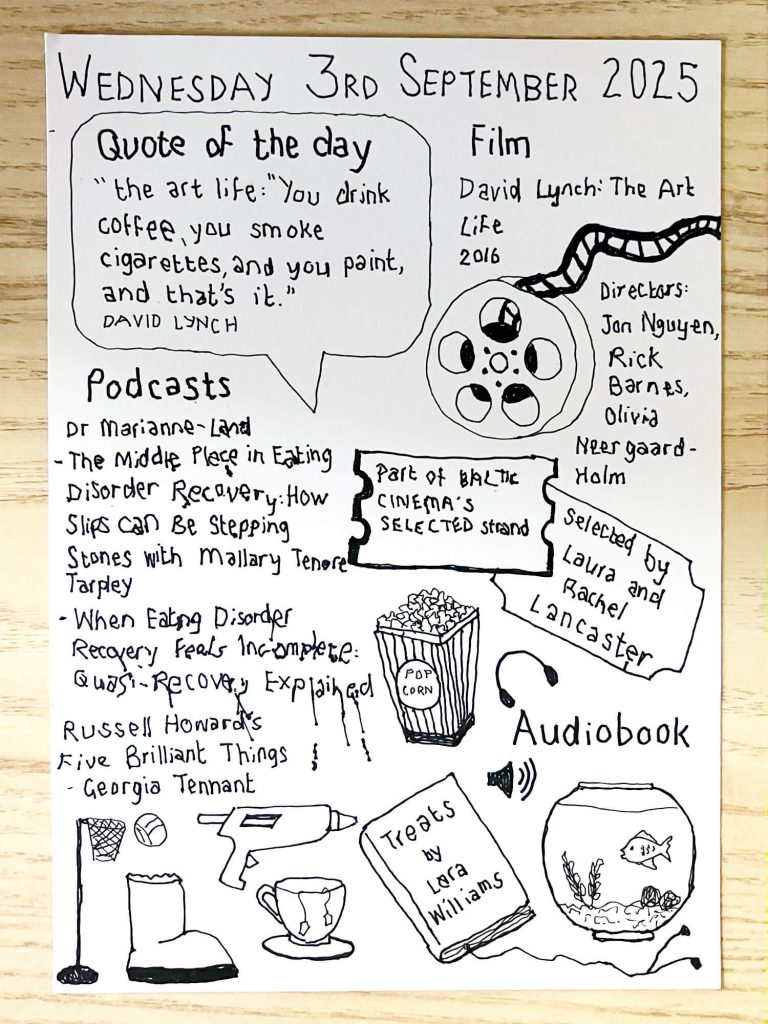 WEDNESDAY 3RD SEPTEMBER 2025
Quote of the day
"the art life:"You drink
coffee, you smoke
cigarettes, and you paint,
and that's it."
DAVID LYNCH
Film
David Lynch: The Art
Life
2016
Directors:
Jon Nguyen,
Rick
Barnes,
Olivia
Neergaard-
Holm
Podcasts
Dr Marianne-Land
- The Middle Place in Eating
Disorder Recovery: How
Slips can Be Stepping
Stones with Mallary Tenore
Tarpley
- When Eating Disorder
Recovery Feels Incomplete:
Quasi-Recovery Explained
Russell Howard's
Five Brilliant Things
- Georgia Tennant
Part of BALTIC
CINEMA'S
SELECTED strand
Selected by
Laura and
Rachel
Lancaster
POP
CORN
Audiobook
Treats
by
Lara
Williams